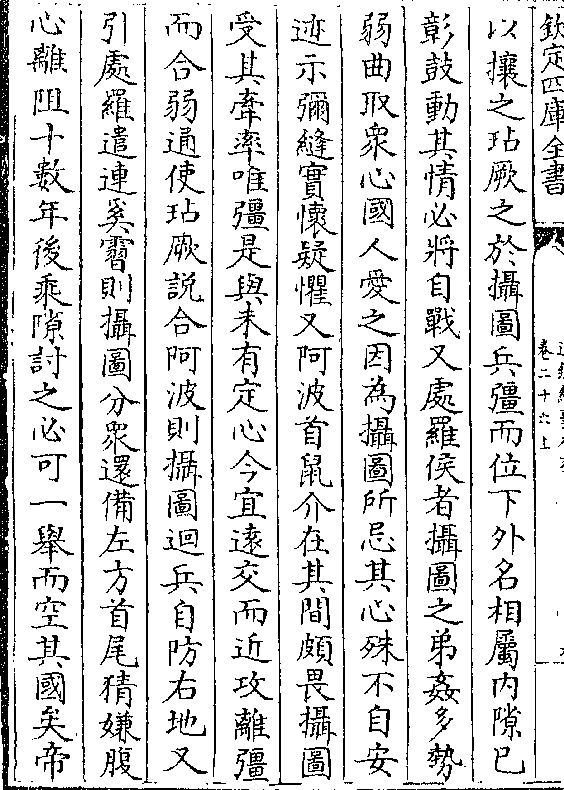 欽定四庫全書
卷二十六上
以攘之玷厥之於攝圖兵彊而位下外名相屬内隙已
彰鼓動其情必將自戰又處羅侯者攝圖之弟姦多勢
弱曲取衆心國人愛之因為攝圖所忌其心殊不自安
迹示彌縫實懷疑懼又阿波首鼠介在其間頗畏攝圖
受其牽率唯彊是與未有定心今宜遠交而近攻離彊
而合弱通使玷厥説合阿波則攝圖迴兵自防右地又
引處羅遣連奚霫則攝圖分衆還備左方首尾猜嫌腹
心離阻十數年後乘隙討之必可一舉而空其國矣帝